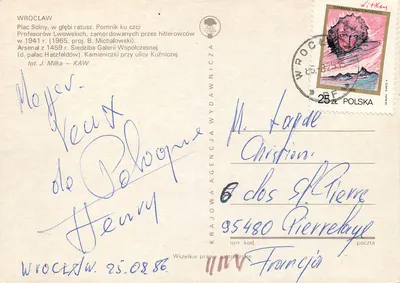 WROCŁAW
Plac Solny, w głębi ratusz. Pomnik ku czci
Profesorów Lwowskich, zamordowanych przez hitlerowców
w 1941 r. (1965, proj. B. Michałowski).
Arsenał z 1459 r. Siedziba Galerii Współczesnej
(d. pałac Hatzfeldów). Kamieniczki przy ulicy Kuźniczej
fot. J. Milka — KAW
de Pologne
Henry
WROCŁAW. 25.08.86
KRAJOWA AGENCJA WYDAWNICZA
WROCŁAW
25 ZŁ POLSKA
M.
Christian
6 clos St. Pierre
95480 Pierrelaye
kod
poczta
Francja